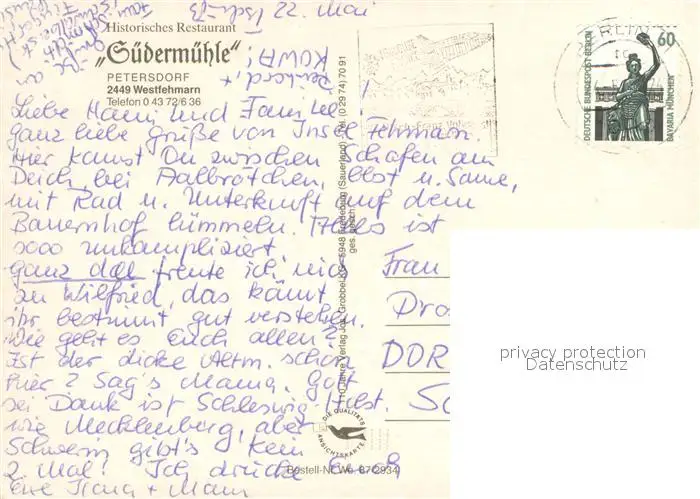 Tsch-B 22. Mai
Historisches Restaurant
„Südermühle"
PETERSDORF
2449 Westfehmarn
Telefon 0 43 72/6 36
Liebe Hanni und Familie!
ganz liebe Grüße von Insel Fehmarn.
Hier kannst Du zwischen Schafen am
Deich, bei Aalbrötchen, Obst u. Sonne,
mit Rad u. Unterkunft auf dem
Bauernhof lümmeln. Alles ist
sooo unkompliziert,
ganz doll freute ich mich
zu Wilfried, das könnt
ihr bestimmt gut verstehen.
Wie geht es Euch allen?
Ist der dicke Altm. schon
hier? Sag's Mama. Gott
sei Dank ist Schleswig Holst. so
wie Mecklenburg, aber
Schwerin gibt's kein
2. Mal! Ich drücke Euch
Eure
110 Jahre Verlag Jos. Grobbel KG · 5948 Fredeburg (Sauerland) · Tel. (0 29 74) 70 91
ges. gesch.
DIE QUALITÄTS
ANSICHTSKARTE
Bestell-Nr. We 87(2934)
BERLIN
60
DEUTSCHE BUNDESPOST BERLIN
BAVARIA MÜNCHEN
Frau
DDR
privacy protection
Datenschutz